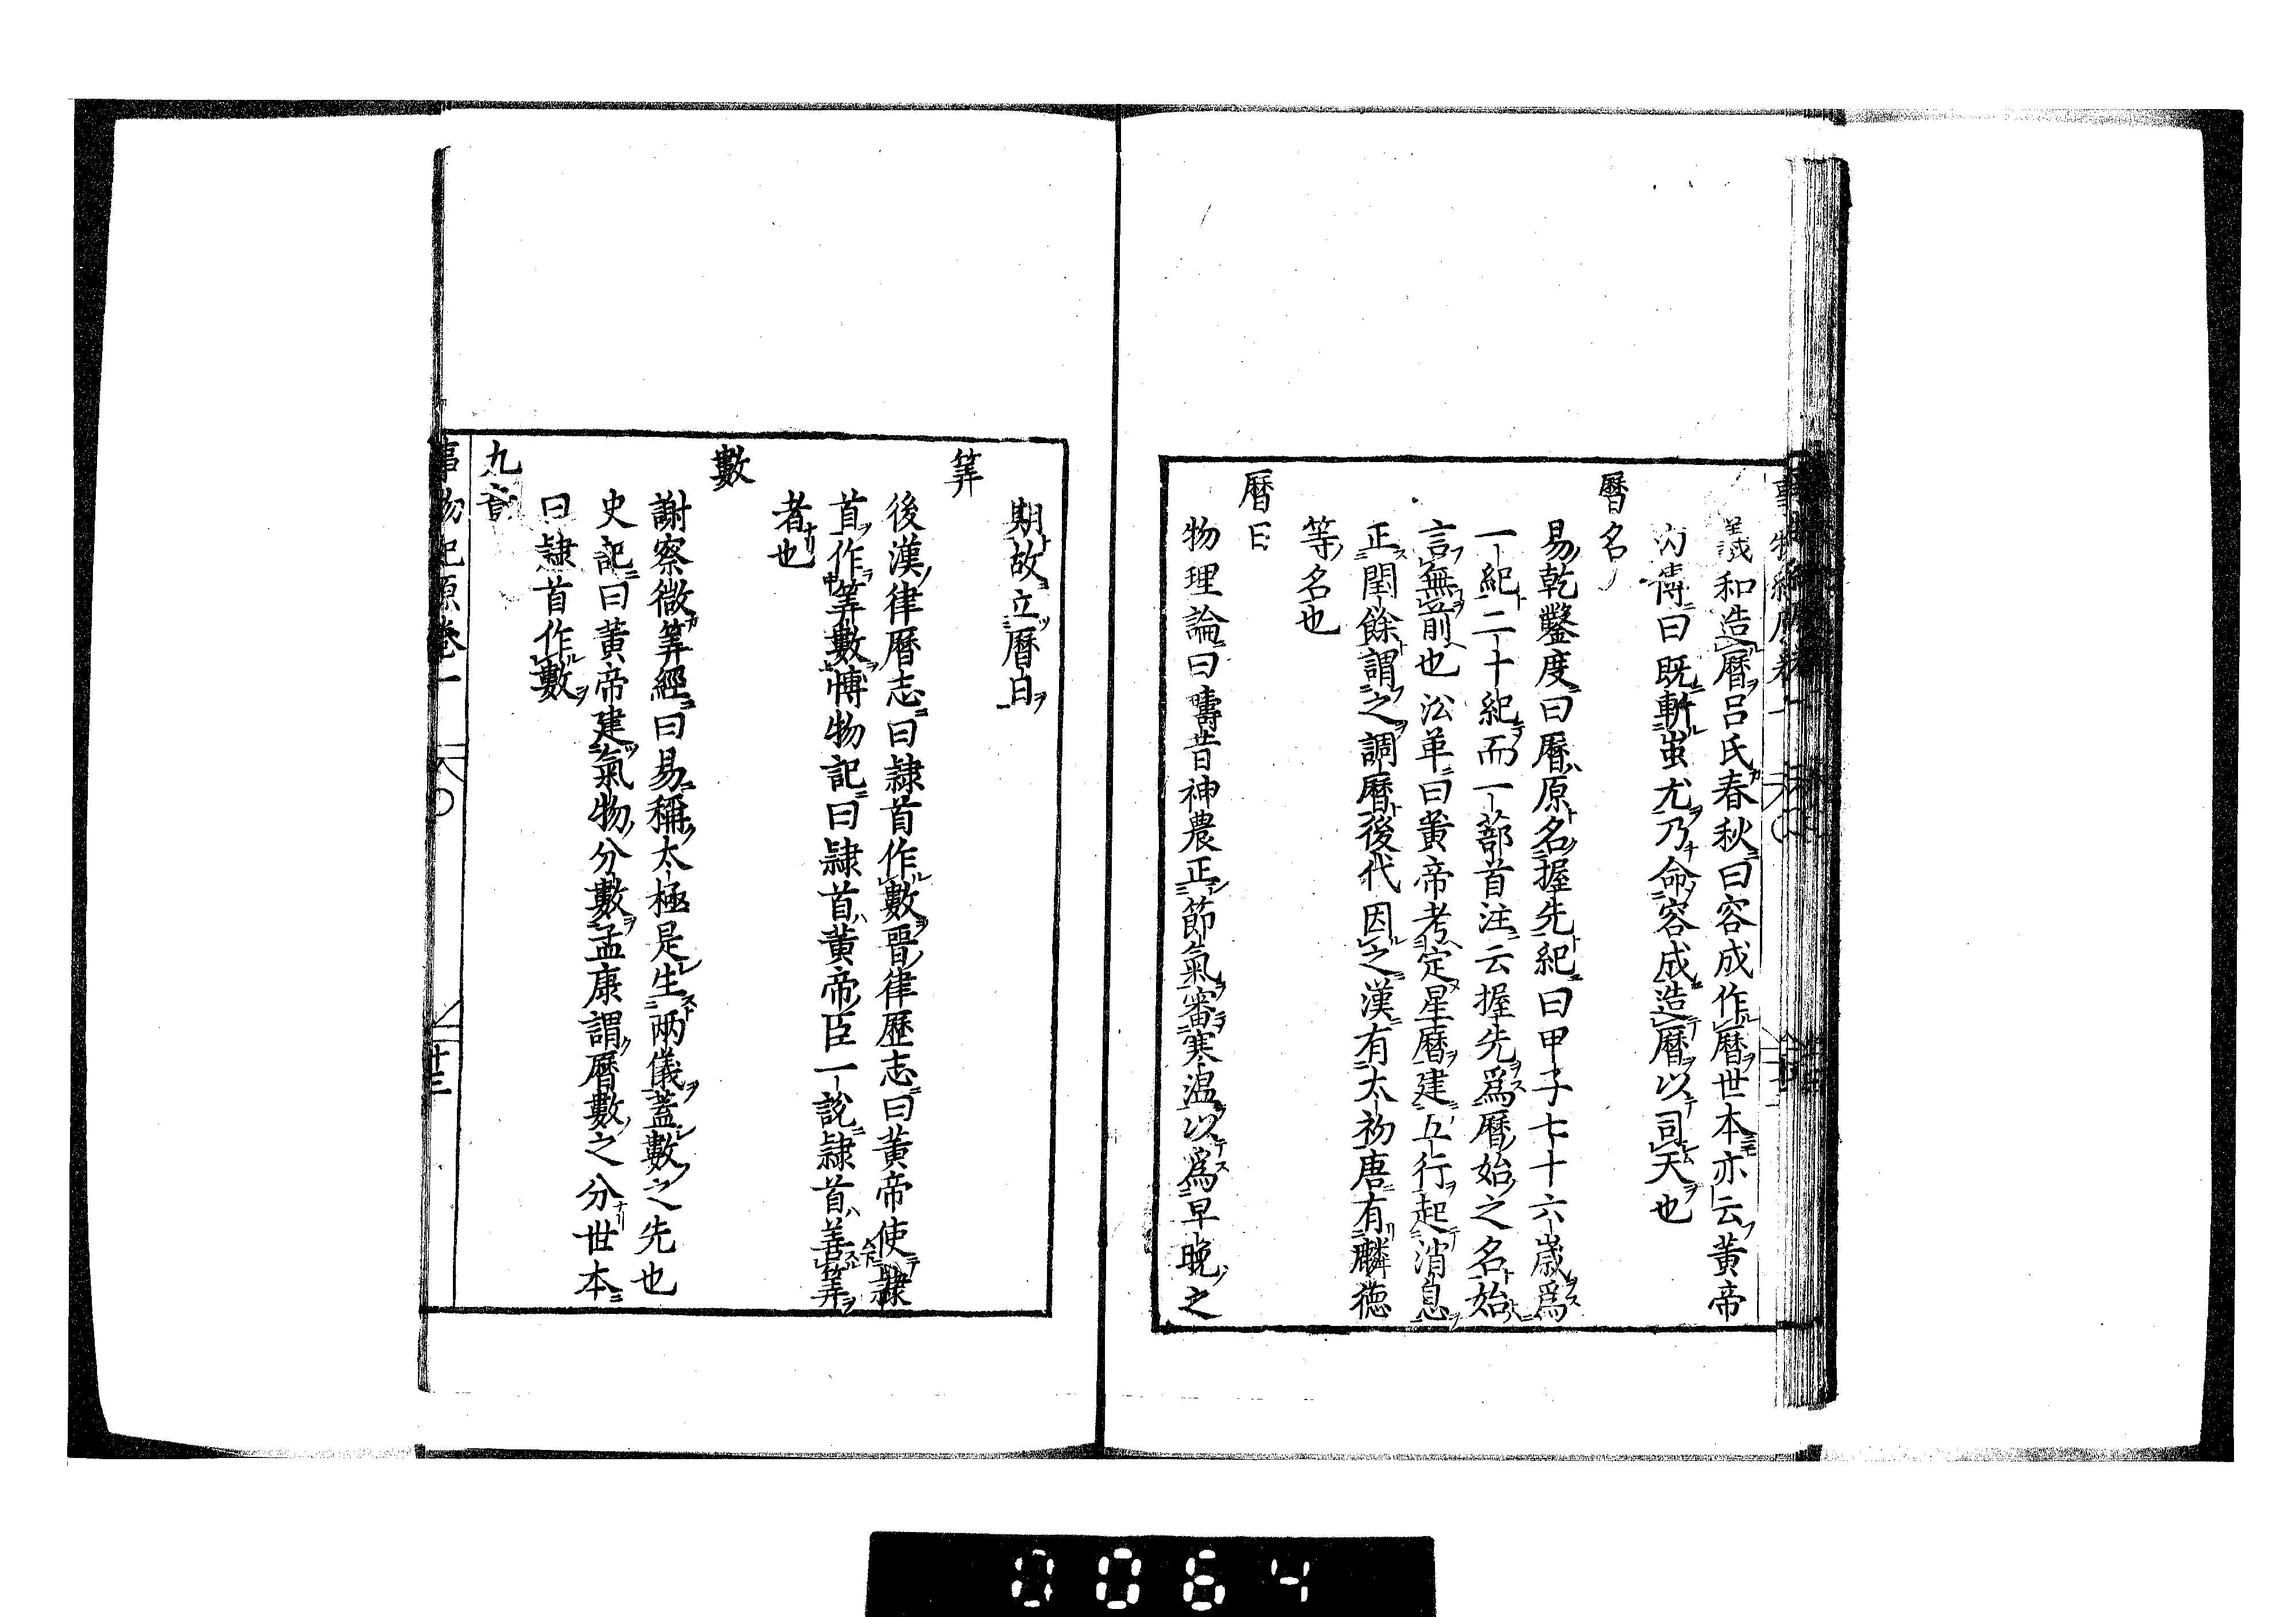 羲和造曆呂氏春秋曰容成作曆世本亦云黃帝
內傳曰既斬蚩尤乃命容成造曆以司天也
曆名
易乾鑿度曰曆原名握先紀曰甲子七十六歲爲
一紀二十紀而一蔀首注云握先爲曆始之名始
言無前也沿革曰黃帝考定星曆建五行起消息
正閏餘謂之調曆後代因之漢有太初唐有麟德
等名也
曆日
物理論曰疇昔神農正節氣審寒溫以爲早晚之
期故立曆日
筭
後漢律曆志曰隷首作數晉律歷志曰黃帝使隷
首作筭數博物記曰隷首黃帝臣一說隷首善筭
者也
數
謝察微筭經曰易稱太極是生兩儀蓋數之先也
史記曰黃帝建氣物分數孟康謂曆數之分世本
曰隷首作數
九章
事物紀原卷一 十三